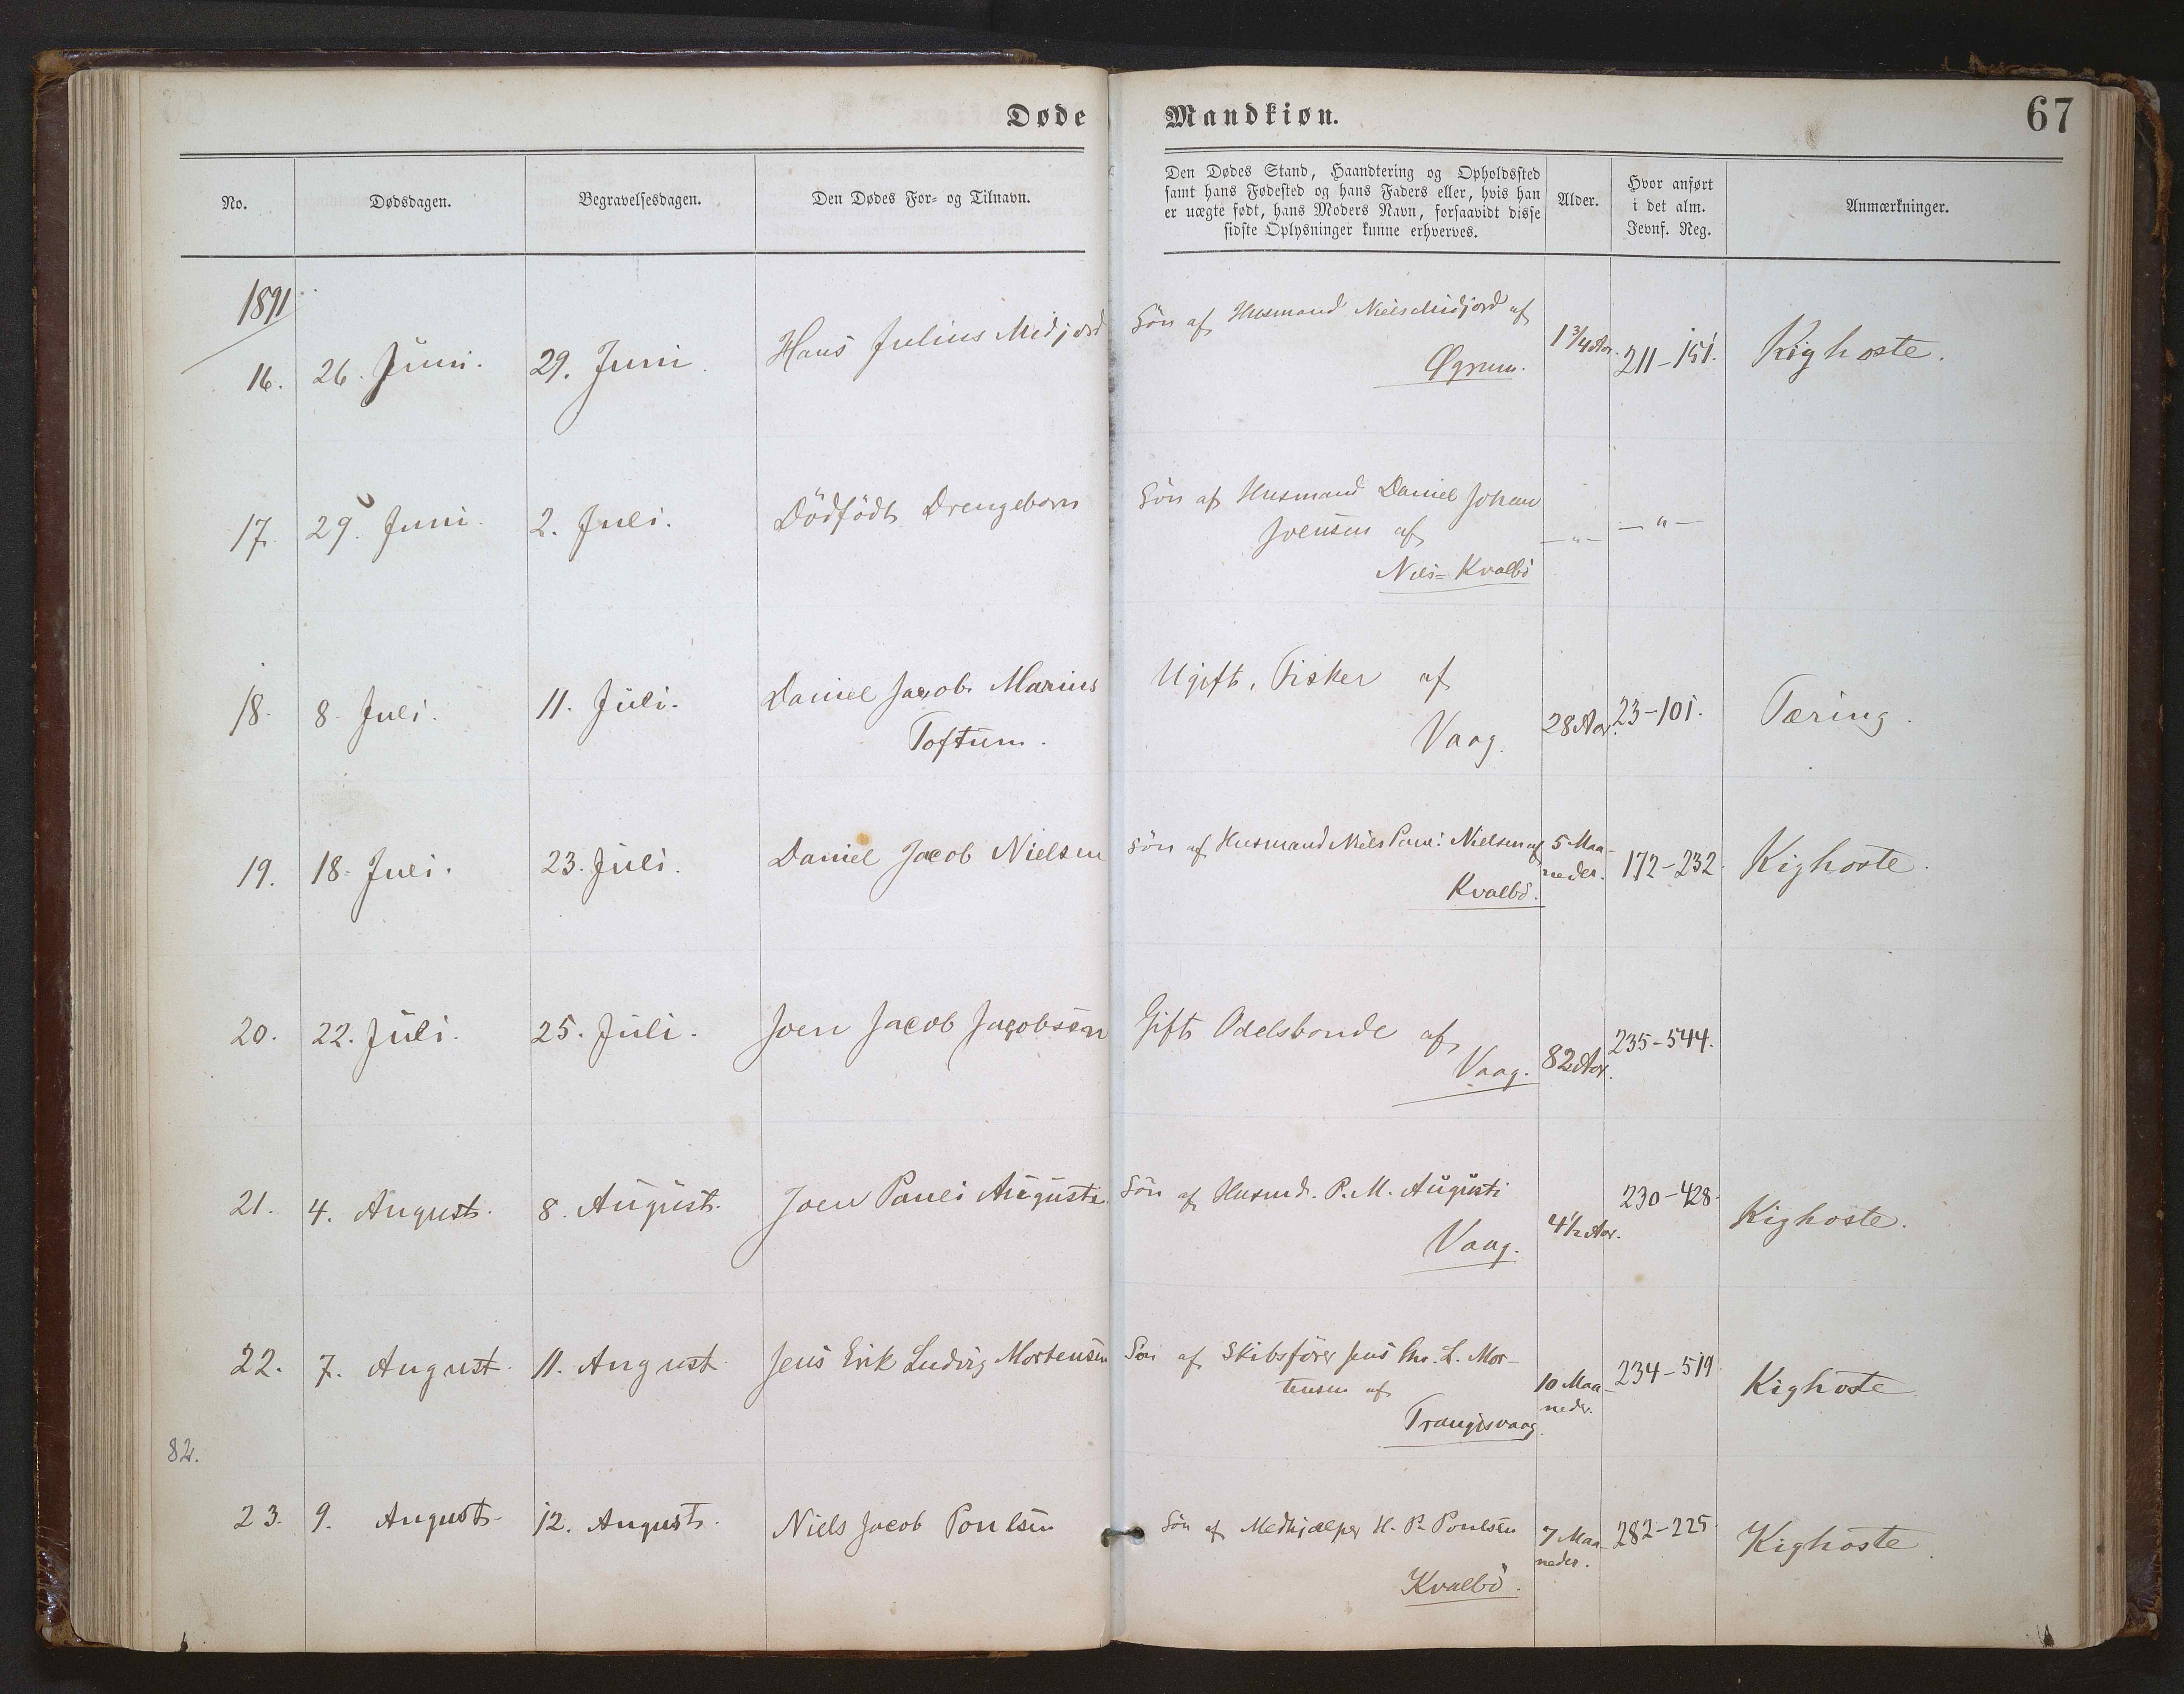 Døde Mandkiøn. 67
No. Dødsdagen. Begravelsesdagen. Den Dødes For- og Tilnavn.
Den Dødes Stand, Haandtering og Opholdssted
samt hans Fødested og hans Faders eller, hvis han
er uægte født, hans Moders Navn, forsaavidt disse
sidste Oplysninger kunne erhverves.
Alder.
Hvor anført
i det alm.
Jevnf. Reg.
Anmærkninger.
1891
16. 26. Juni. 29. Juni. Hans Julius Midjord Sön af Husmand Niels Midjord af
1 3/4 Aar. 211-151. Kighoste.
17. 29. Juni. 2. Juli. Dödfödt Drengebarn Sön af Husmand Daniel Johan
af -"- -"-
Kvalbö
18. 8. Juli. 11. Juli. Daniel Jacob Marius Ugift, Fisker af
Toftum. Vaag. 28 Aar. 23-101. Tæring.
19. 18. Juli. 23. Juli. Daniel Jacob Nielsen Sön af Husmand Niels Nielsen af 5 Maa-
neder. 172-232. Kighoste.
Kvalbö.
20. 22. Juli. 25. Juli. Joen Jacob Jacobsen Gift Odelsbonde af
Vaag. 82 Aar. 235-544.
21. 4. August. 8. August. Joen Pauli Augusti Sön af Husmd. P. M. Augusti
Vaag. 4 1/2 Aar. 230-428. Kighoste.
22. 7. August. 11. August. Jens Erik Ludvig Mortensen Sön af Skibsförer Jens Chr. L. Mor-
tensen af 10 Maa-
neder. 234-519. Kighoste.
Trangisvaag.
82.
23. 9. August. 12. August. Niels Jacob Poulsen Sön af Medhjælper H. P. Poulsen 7 Maa-
neder. 282-225. Kighoste.
Kvalbö.